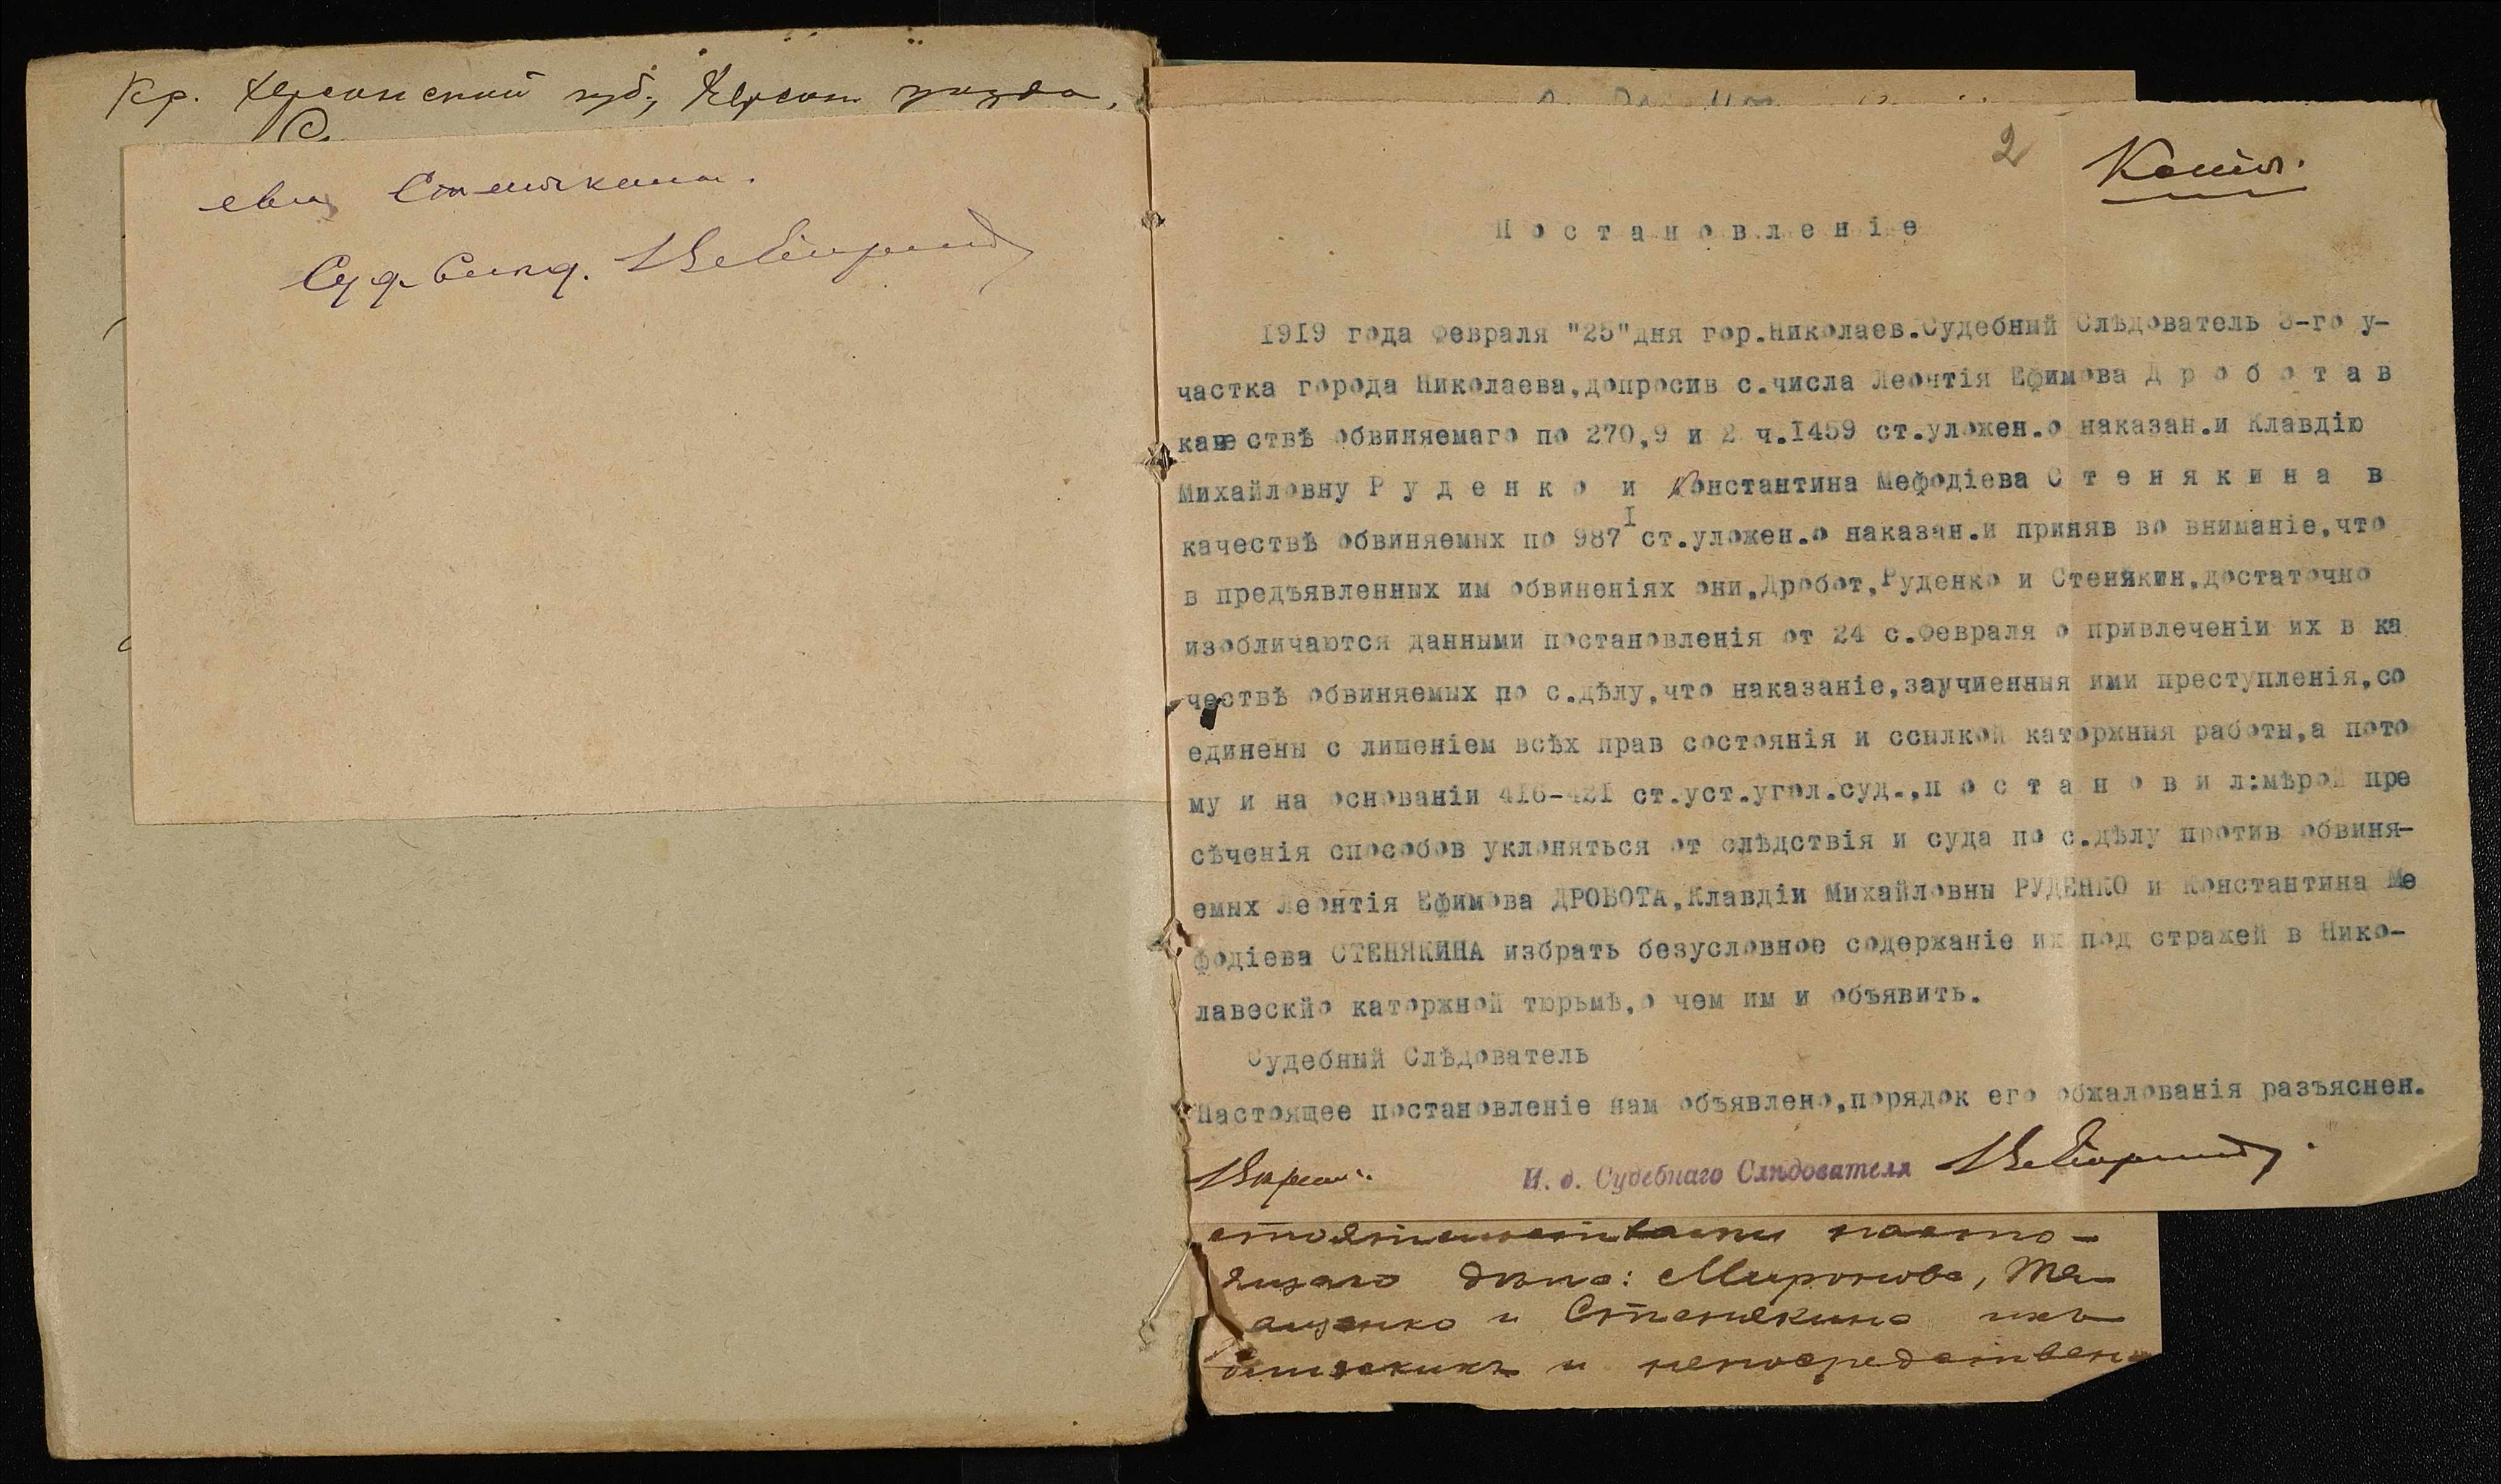 Кр. Херсонской губ., Херсон. уезда,
С.
евича Стенякина.
Суд. След.
2
Копія.
Постановленіе
1919 года Февраля "25" дня гор.Николаев.Судебный Слѣдователь 3-го у-
частка города Николаева,допросив с.числа Леонтія Ефимова Д р о б о т а в
качествѣ обвиняемаго по 270,9 и 2 ч.1459 ст.уложен.о наказан.и Клавдію
Михайловну Р у д е н к о и Константина Мефодіева С т е н я к и н а в
качествѣ обвиняемых по 987 I ст.уложен.о наказан.и приняв во вниманіе,что
в предъявленных им обвиненіях они,Дробот,Руденко и Стенякин,достаточно
изобличаются данными постановленія от 24 с.Февраля о привлеченіи их в ка
чествѣ обвиняемых по с.дѣлу,что наказаніе,заучиенныя ими преступленія,со
единены с лишеніем всѣх прав состоянія и ссылкой каторжныя работы,а пото
му и на основаніи 416-421 ст.уст.угол.суд.,п о с т а н о в и л:мѣрой пре
сѣченія способов уклоняться от слѣдствія и суда по с.дѣлу против обвиня-
емых Леонтія Ефимова ДРОБОТА,Клавдіи Михайловны РУДЕНКО и Константина Ме
фодіева СТЕНЯКИНА избрать безусловное содержаніе их под стражей в Нико-
лавескйо каторжной тюрьмѣ,о чем им и объявить.
Судебный Слѣдователь
Настоящее постановленіе нам объявлено,порядок его обжалованія разъяснен.
Вѣрно: И. д. Судебнаго Слѣдователя
стоятельствами насто-
ящаго дѣла: Миронова, Те-
ащенко и Стенякина
близкихъ и непосредствен